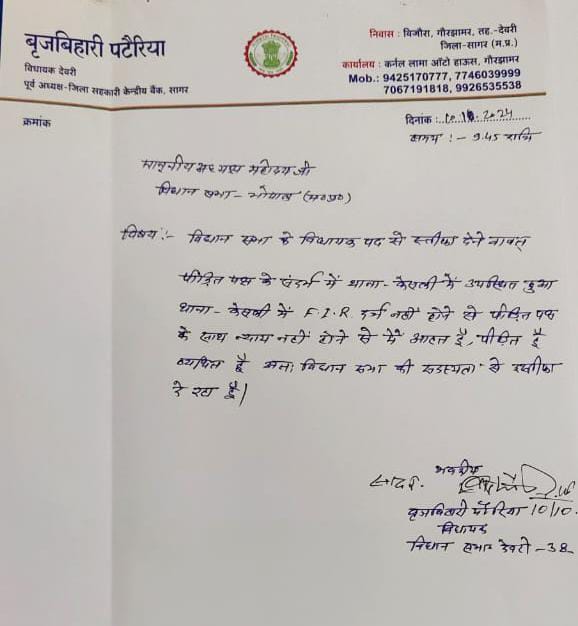 बृजबिहारी पटैरिया
विधायक देवरी
पूर्व अध्यक्ष-जिला सहकारी केन्द्रीय बैंक, सागर
निवास : बिजौरा, गौरझामर, तह.-देवरी
जिला-सागर (म.प्र.)
कार्यालय : कर्नल लामा ऑटो हाऊस, गौरझामर
Mob.: 9425170777, 7746039999
7067191818, 9926535538
क्रमांक
दिनांक : 10.10.2024
समय :- 9.45 रात्रि
माननीय अध्यक्ष महोदय जी
विधान सभा - भोपाल (म०प्र०)
विषय :- विधान सभा के विधायक पद से स्तीफा देने बावत्
पीड़ित पक्ष के संदर्भ में थाना - केसली में उपस्थित हुआ
थाना - केसली में F.I.R दर्ज नहीं होने से पीड़ित पक्ष
के साथ न्याय नहीं होने से मैं आहत हूँ, पीड़ित हूँ
व्यथित हूँ अतः विधान सभा की सदस्यता से स्तीफा
दे रहा हूँ।
सादर भवदीय
10/10.
बृजबिहारी पटैरिया
विधायक
विधान सभा देवरी - 38